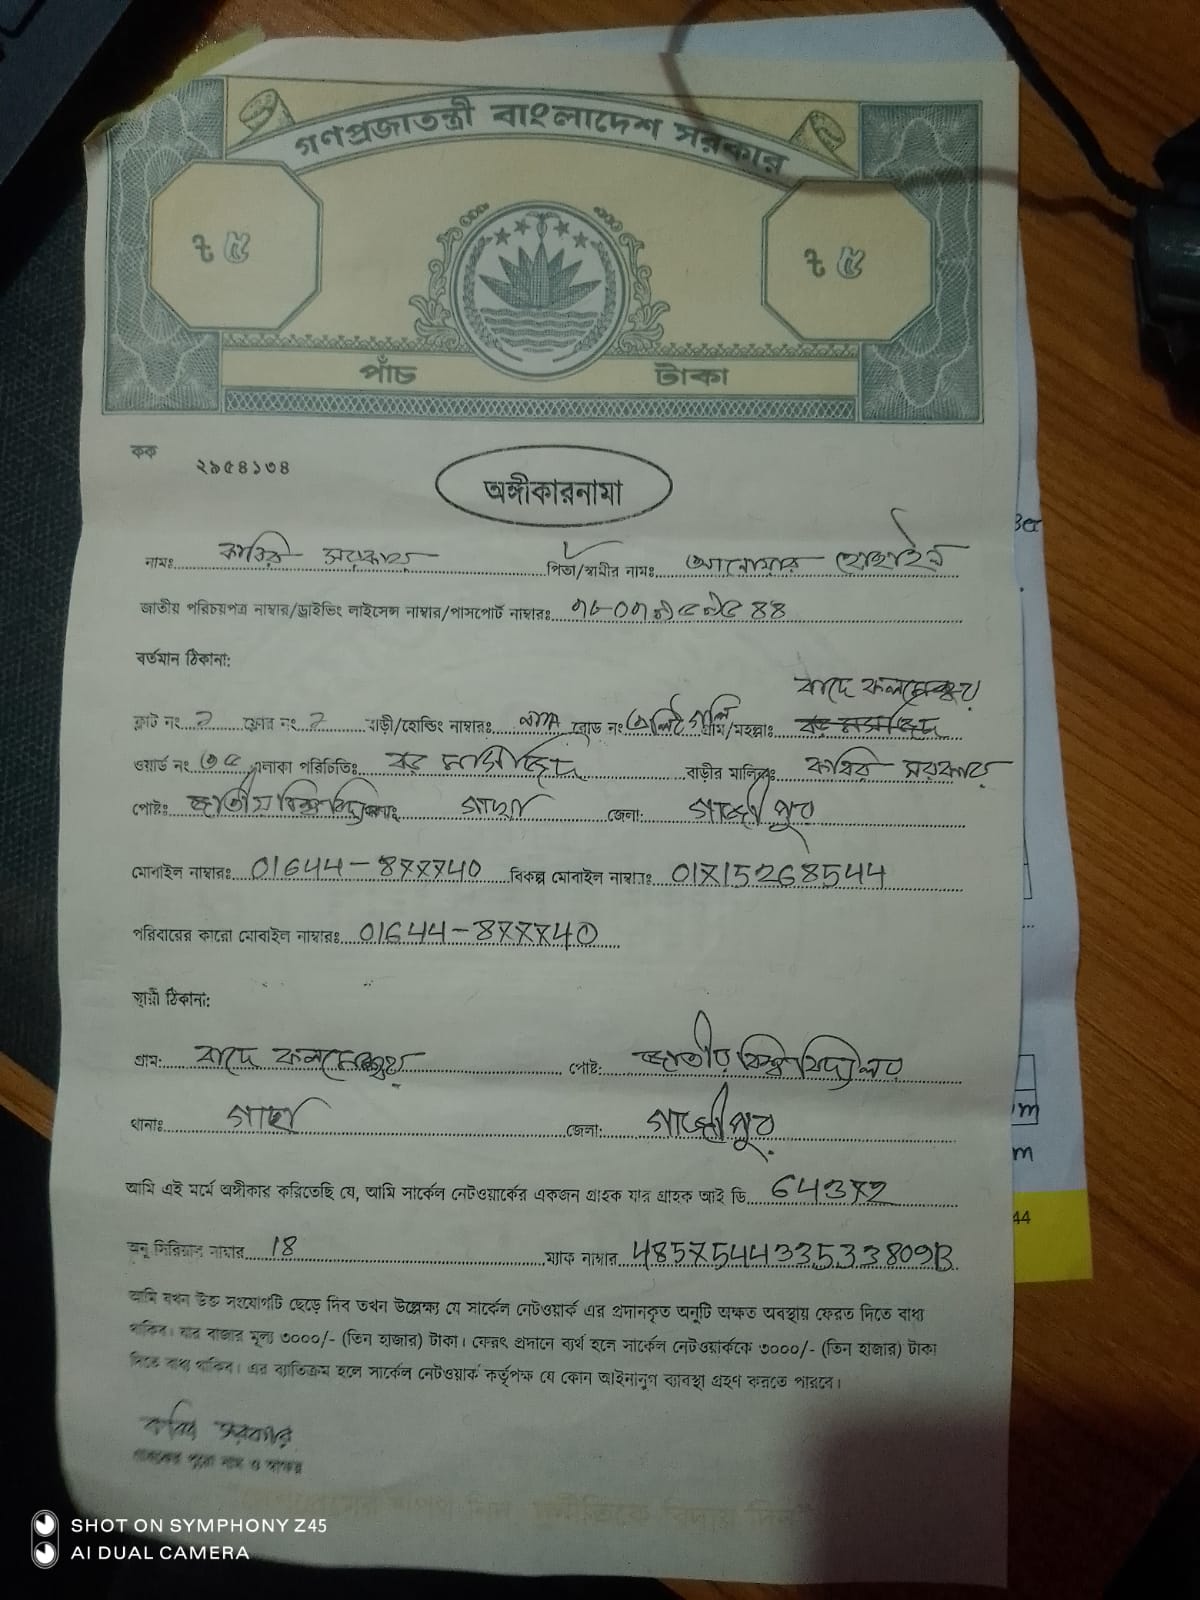 গণপ্রজাতন্ত্রী বাংলাদেশ সরকার
৳ ৫ ৳ ৫
পাঁচ টাকা
কক ২৯৫৪১৩৪
অঙ্গীকারনামা
নামঃ কবির সরকার পিতা/স্বামীর নামঃ আনোয়ার হোছাইন
জাতীয় পরিচয়পত্র নাম্বার/ড্রাইভিং লাইসেন্স নাম্বার/পাসপোর্ট নাম্বারঃ
বর্তমান ঠিকানা:
বাদে কলমেশ্বর
ফ্লাট নং 2 ফ্লোর নং 2 বাড়ী/হোল্ডিং নাম্বারঃ N/A রোড নং গলি গ্রাম/মহল্লাঃ
ওয়ার্ড নং ৩৫ এলাকা পরিচিতিঃ বড় মসজিদ বাড়ীর মালিকঃ কবির সরকার
পোষ্টঃ জাতীয় বিশ্ববিদ্যালয় গাছা জেলা: গাজীপুর
মোবাইল নাম্বারঃ 01644-877740 বিকল্প মোবাইল নাম্বারঃ 01715268544
পরিবারের কারো মোবাইল নাম্বারঃ 01644-877740
স্থায়ী ঠিকানা:
গ্রাম: বাদে কলমেশ্বর পোষ্ট: জাতীয় বিশ্ববিদ্যালয়
থানাঃ গাছা জেলা: গাজীপুর
আমি এই মর্মে অঙ্গীকার করিতেছি যে, আমি সার্কেল নেটওয়ার্কের একজন গ্রাহক যার গ্রাহক আই ডি 64372
অনু সিরিয়াল নাম্বার 18 ম্যাক নাম্বার 485754433533809B
আমি যখন উক্ত সংযোগটি ছেড়ে দিব তখন উল্লেক্ষ্য যে সার্কেল নেটওয়ার্ক এর প্রদানকৃত অনুটি অক্ষত অবস্থায় ফেরত দিতে বাধ্য
থাকিব। যার বাজার মূল্য ৩০০০/- (তিন হাজার) টাকা। ফেরৎ প্রদানে ব্যর্থ হলে সার্কেল নেটওয়ার্ককে ৩০০০/- (তিন হাজার) টাকা
দিতে বাধ্য থাকিব। এর ব্যতিক্রম হলে সার্কেল নেটওয়ার্ক কর্তৃপক্ষ যে কোন আইনানুগ ব্যবস্থা গ্রহণ করতে পারবে।
কবির সরকার
গ্রাহকের পুরো নাম ও স্বাক্ষর
SHOT ON SYMPHONY Z45
AI DUAL CAMERA